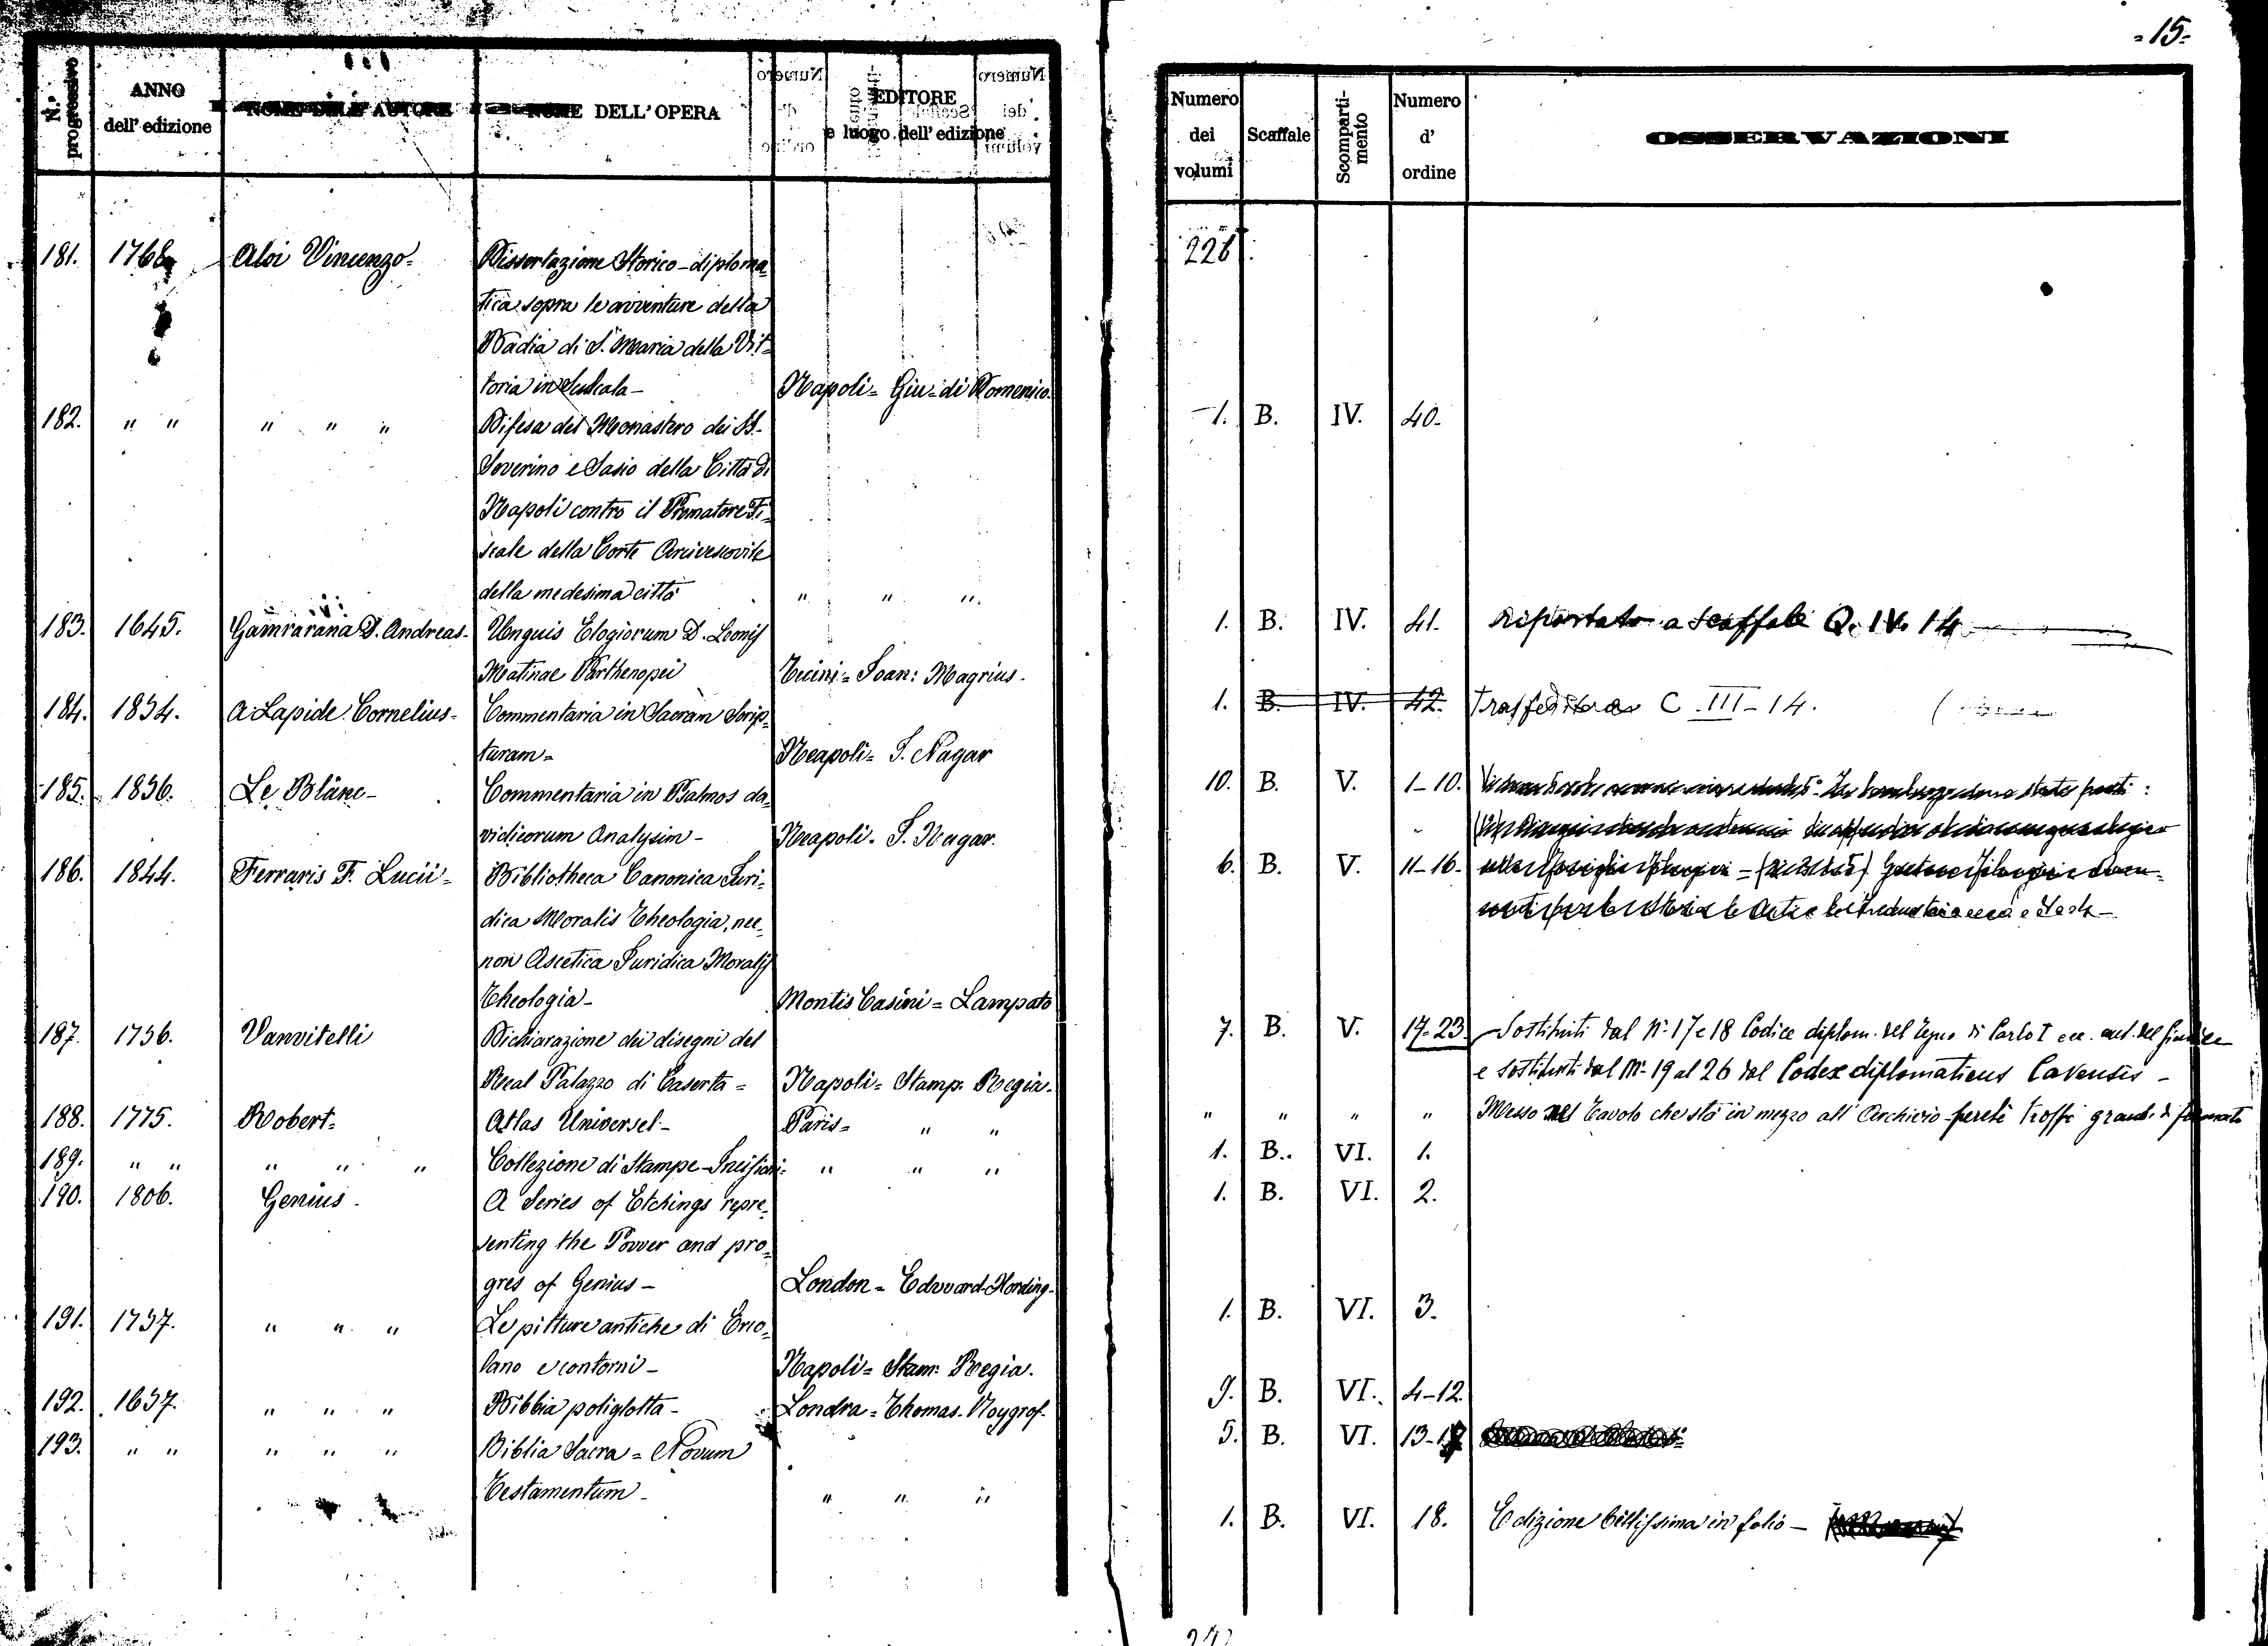 - 15 -
N.° progressivo
ANNO dell' edizione
NOME DELL' AUTORE
NOME DELL' OPERA
EDITORE e luogo dell' edizione
Numero dei volumi
Scaffale
Scomparti-mento
Numero d' ordine
OSSERVAZIONI
226
181. 1768 Aloi Vincenzo= Dissertazione Storico-diploma=
tica sopra le avventure della
Badia di S. Maria della Vit=
toria in Sculcola - Napoli = Giu= di Domenico. 1. B. IV. 40.
182. " " " " " Difesa del Monastero dei SS.
Severino e Sosio della Città di
Napoli contro il Promotore Fi=
scale della Corte Arcivescovile
della medesima città " " " 1. B. IV. 41. riportato a scaffale Q. IV. 14
183. 1645. Gamrarana D. Andreas- Unguis Elogiorum D. Leonis
Matinae Parthenopei Ticini = Joan: Magrius. 1. B. IV. 42. C. III - 14.
184. 1854. A Lapide Cornelius- Commentaria in Sacram Scrip=
turam= Neapoli = J. Nagar 10. B. V. 1-10.
185. 1856. Le Blanc- Commentaria in Psalmos da=
vidicorum Analysim- Neapoli. J. Nagar. 6. B. V. 11-16.
186. 1844. Ferraris F. Lucii= Bibliotheca Canonica Juri=
dica Moralis Theologia, nec=
non Ascetica Juridica Moralis
Theologia- Montis Casini = Lampato 7. B. V. 17-23. Sostituiti dal N. 17 e 18 Codice diplom. del regno di Carlo I ecc. aut. del Giudice
e sostituiti dal N. 19 al 26 dal Codex diplomaticus Cavensis -
187. 1756. Vanvitelli Dichiarazione dei disegni del
Real Palazzo di Caserta = Napoli = Stamp. Regia. " " " " Messo nel Tavolo che sta in mezzo all' Archivio perchè troppo grande di formato
188. 1775. Robert= Atlas Universel- Paris= " " 1. B. VI. 1.
189. " " " " " Collezione di Stampe-Incisioni= " " " 1. B. VI. 2.
190. 1806. Genius- A Series of Etchings repre=
senting the Povver and pro=
gres of Genius- London = Edvvard Harding. 1. B. VI. 3.
191. 1757. " " " Le pitture antiche di Erco=
lano e contorni- Napoli = Stam: Regia. 9. B. VI. 4-12.
192. 1657. " " " Bibbia poliglotta- Londra = Thomas. Roygrof- 5. B. VI. 13-17
193. " " " " " Biblia Sacra = Novum
Testamentum- " " " 1. B. VI. 18. Edizione bellissima in folio -